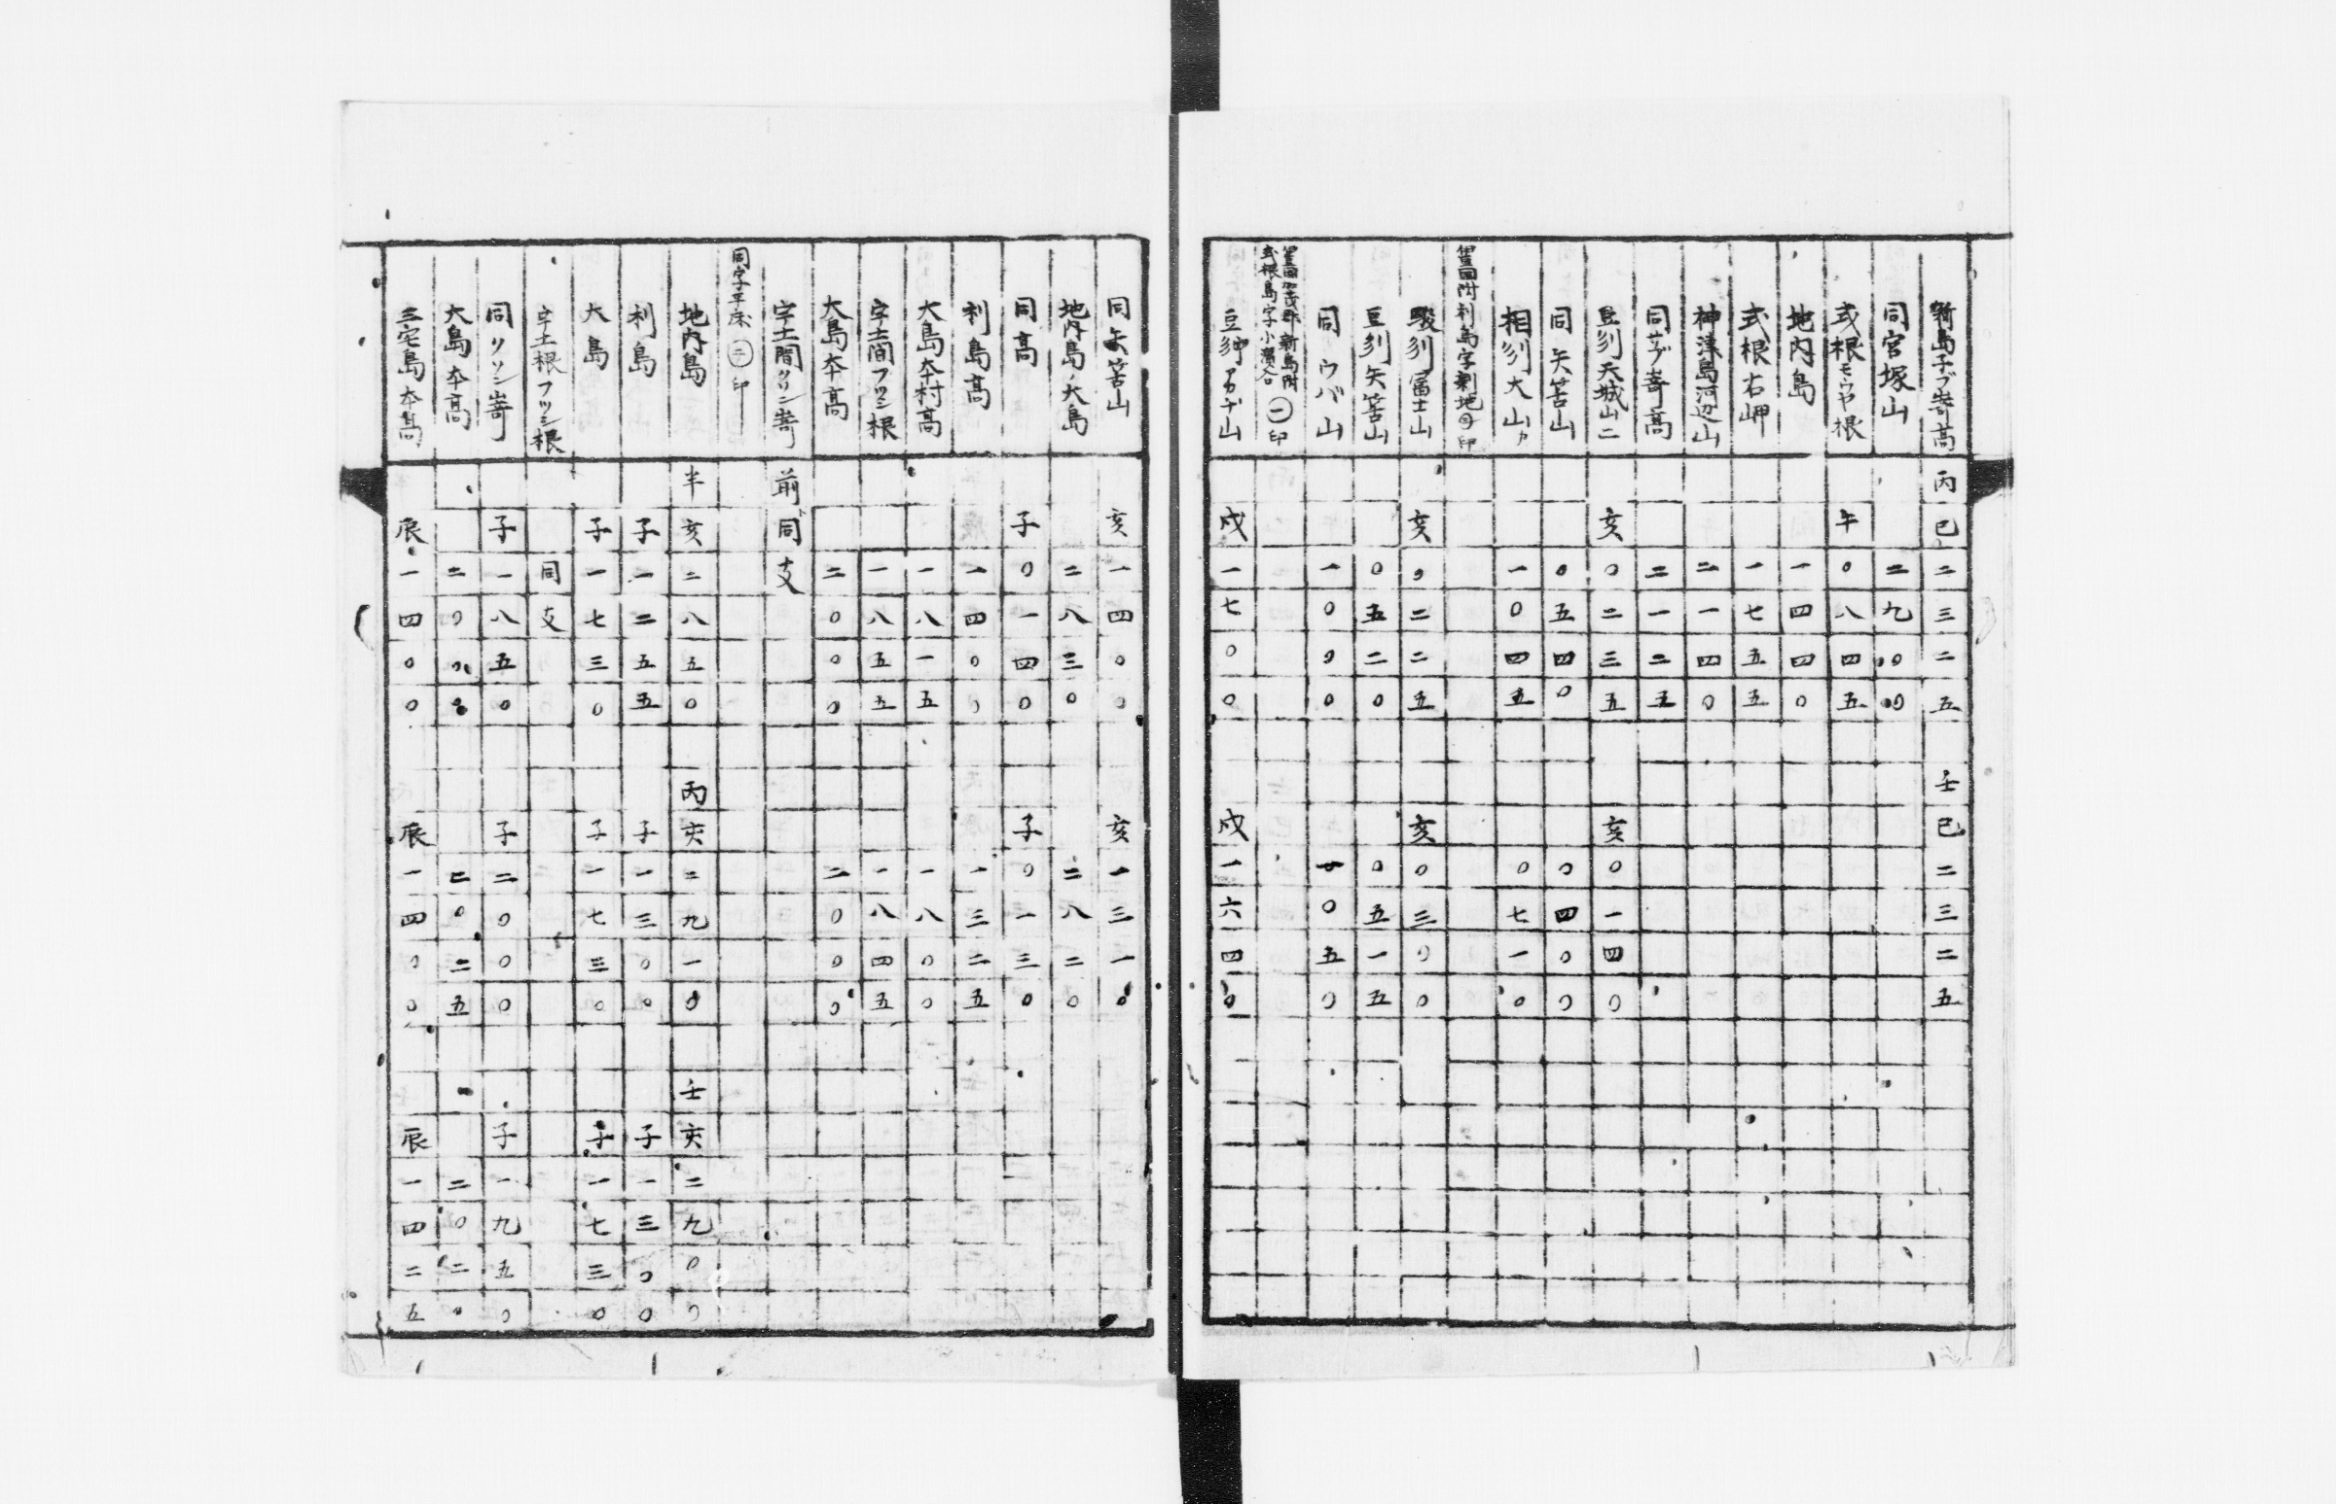 新島子ブ嵜高 丙 巳 二 三 二 五 壬 巳 二 三 二 五
同宮塚山 二 九 〇 〇
式根モウヤ根 午 〇 八 四 五
地内島 一 四 四 〇
式根右岬 一 七 五 五
神津島河辺山 二 一 四 〇
同サブ嵜高 二 一 二 五
豆刕天城山二 亥 〇 二 三 五 亥 〇 一 四 〇
同矢筈山 〇 五 四 〇 〇 四 〇 〇
相刕大山カ 一 〇 四 五 〇 七 一 〇
附利島字 地 印
駿刕冨士山 亥 〇 二 二 五 亥 〇 三 〇 〇
豆刕矢筈山 〇 五 二 〇 〇 五 一 五
同ウバ山 一 〇 〇 〇 一 〇 五 〇
新島附
式根島字小濱谷 ㊀印
豆刕 山 戌 一 七 〇 〇 戌 一 六 四 〇
同矢筈山 亥 一 四 〇 〇 亥 一 三 一 〇
地内島ノ大島 二 八 三 〇 二 八 二 〇
同高 子 〇 一 四 〇 子 〇 一 三 〇
利島高 一 四 〇 〇 一 三 二 五
大島本村高 一 八 一 五 一 八 〇 〇
字土間フツシ根 一 八 五 五 一 八 四 五
大島本高 二 〇 〇 〇 二 〇 〇 〇
字土間クリン嵜 前同支
同字平床 ㊁印
地内島 半 亥 二 八 五 〇 丙 亥 二 九 一 〇 壬 亥 二 九 〇 〇
利島 子 一 二 五 五 子 一 三 〇 〇 子 一 三 〇 〇
大島 子 一 七 三 〇 子 一 七 三 〇 子 一 七 三 〇
字土根フツシ根 同支
同リソン嵜 子 一 八 五 〇 子 二 〇 〇 〇 子 一 九 五 〇
大島本高 二 〇 〇 〇 二 〇 二 五 二 〇 二 〇
三宅島本高 辰 一 四 〇 〇 辰 一 四 〇 〇 辰 一 四 二 五